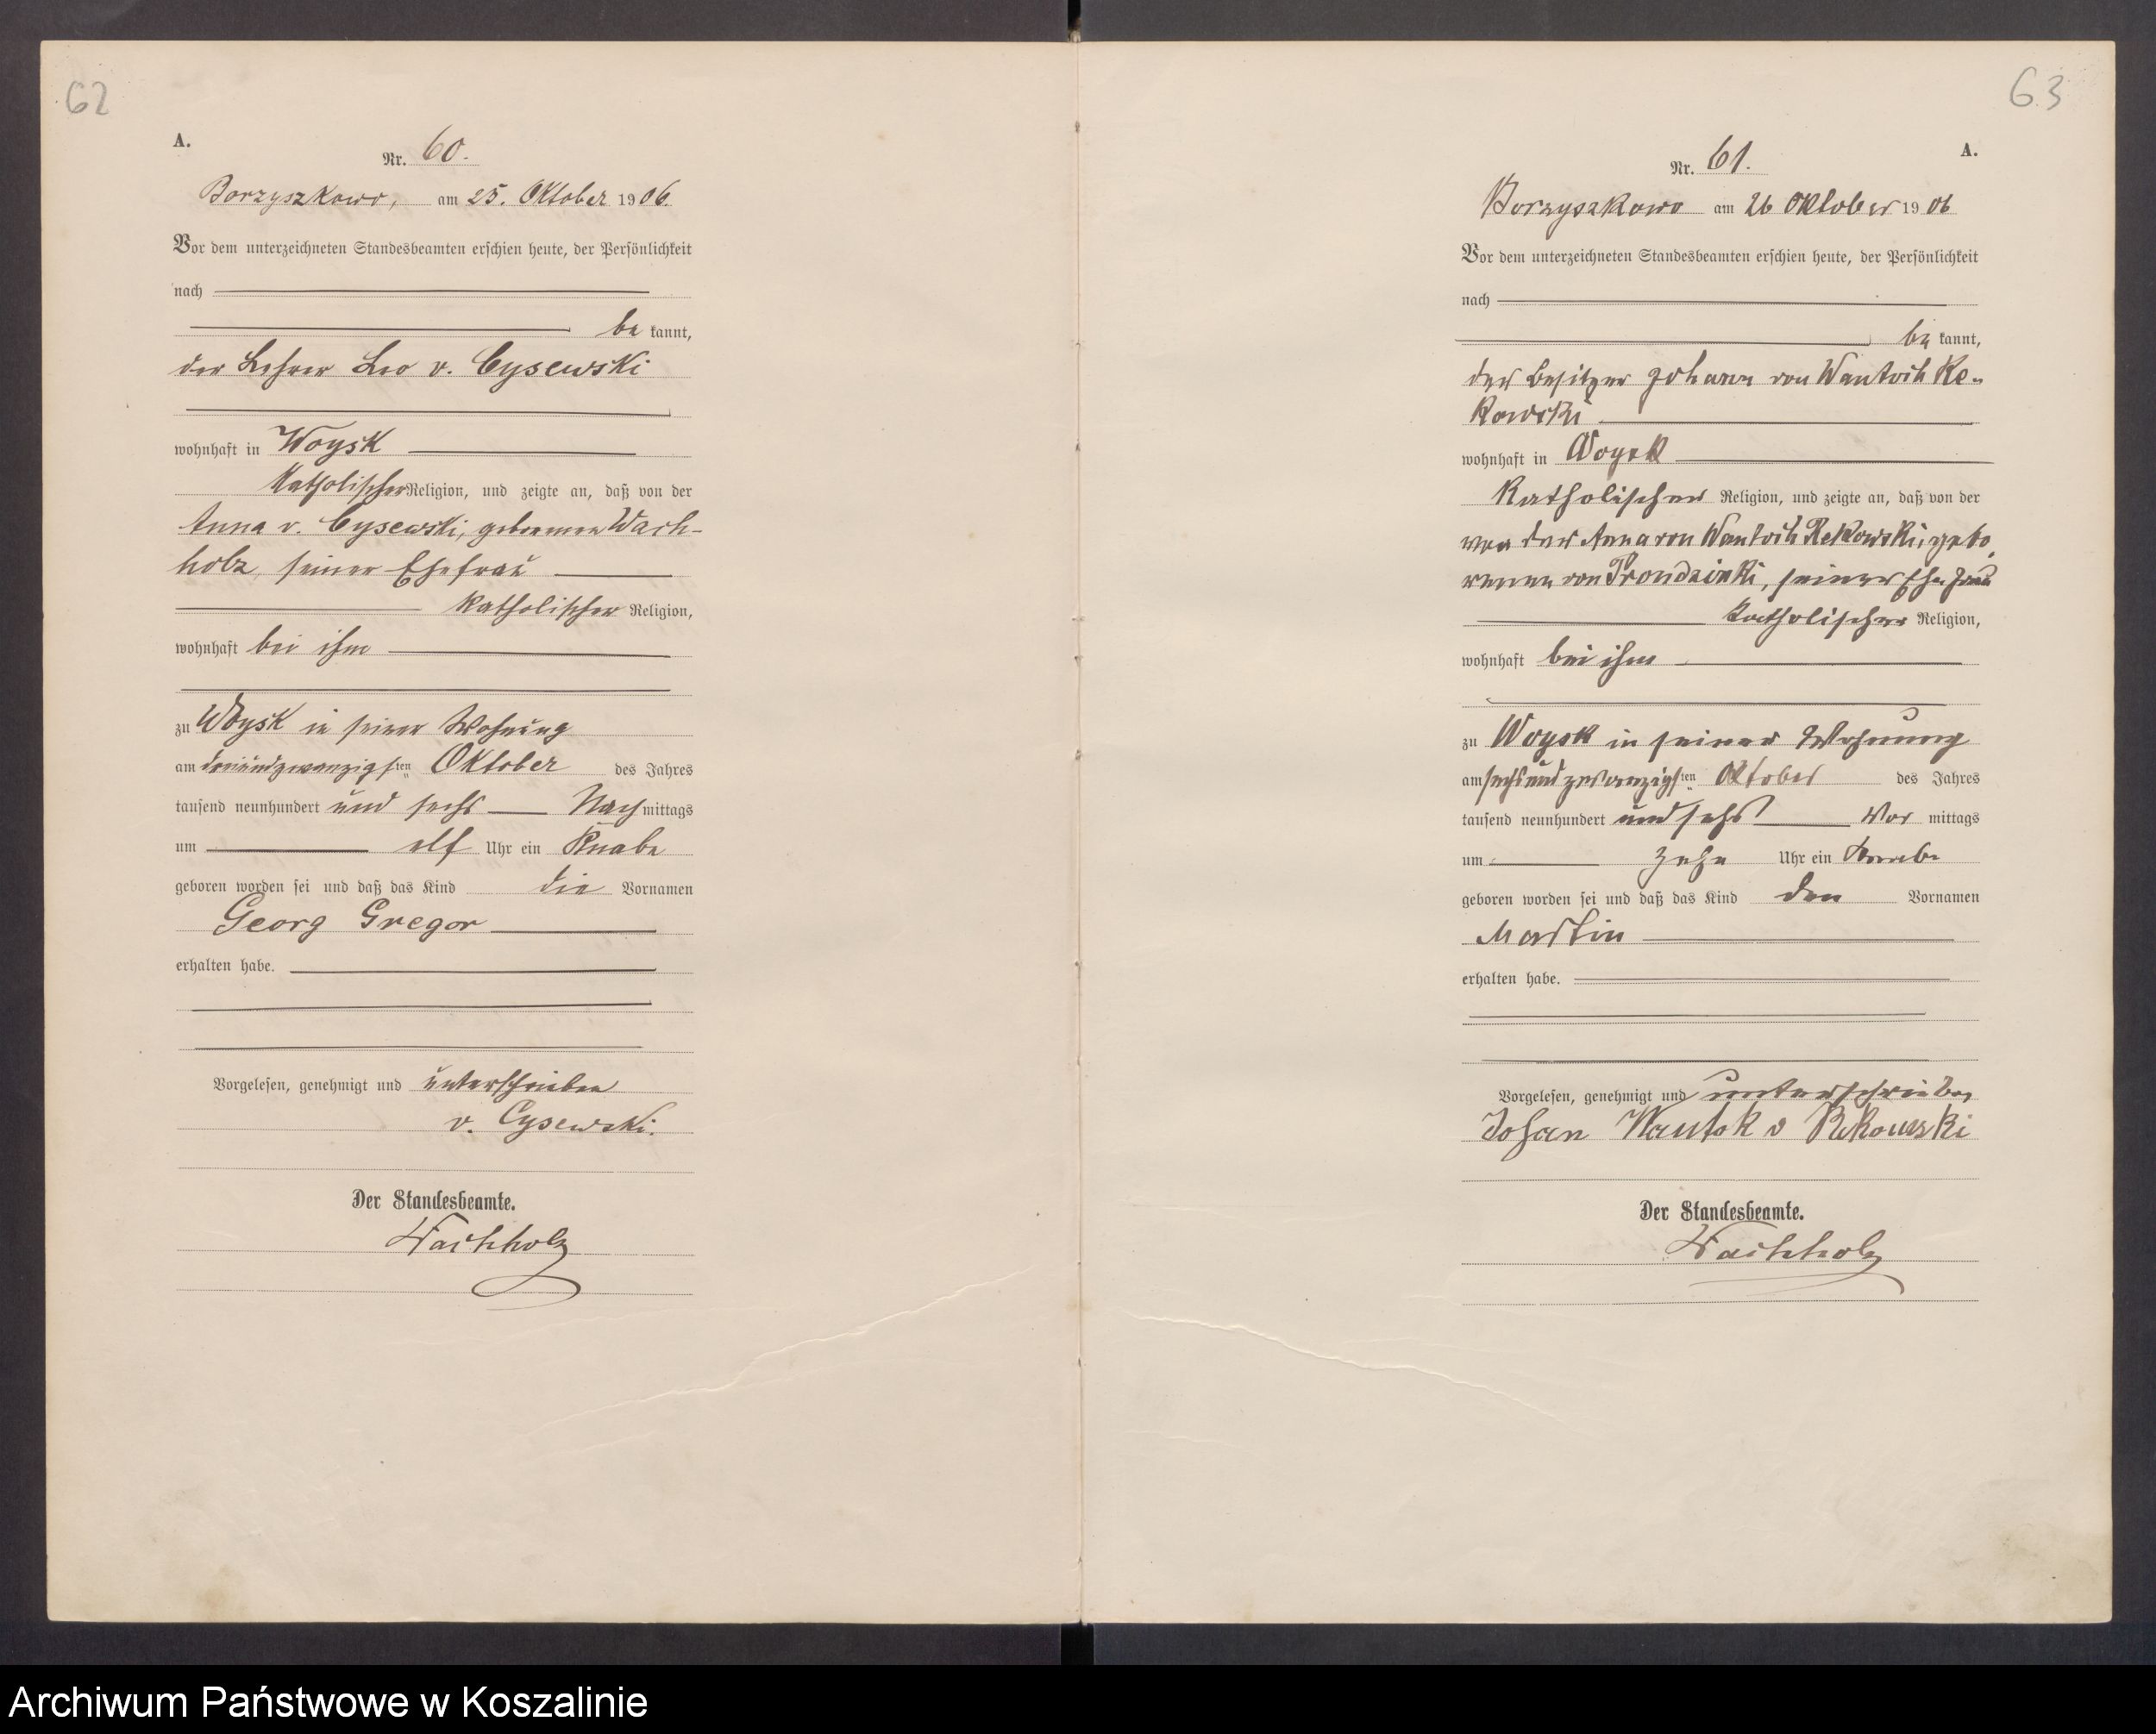 62
A.
Nr. 60.
Borzyszkowo, am 25. Oktober 1906.
Vor dem unterzeichneten Standesbeamten erschien heute, der Persönlichkeit
nach
be kannt,
der Lehrer Leo v. Cysewski
wohnhaft in Woysk
katholischer Religion, und zeigte an, daß von der
Anna v. Cysewski, geborenen Wach-
holz, seiner Ehefrau
katholischer Religion,
wohnhaft bei ihm
zu Woysk in seiner Wohnung
am dreiundzwanzigsten Oktober des Jahres
tausend neunhundert und sechs Nach mittags
um elf Uhr ein Knabe
geboren worden sei und daß das Kind die Vornamen
Georg Gregor
erhalten habe.
Vorgelesen, genehmigt und unterschrieben
v. Cysewski.
Der Standesbeamte.
Wachholz
63
A.
Nr. 61.
Borzyszkowo am 26 Oktober 1906
Vor dem unterzeichneten Standesbeamten erschien heute, der Persönlichkeit
nach
be kannt,
der Besitzer Johann von Wantoch Re-
kowski
wohnhaft in Woysk
katholischer Religion, und zeigte an, daß von der
von der Anna von Wantoch Rekowski, gebo
renen von Prondzinski, seiner Ehefrau
katholischer Religion,
wohnhaft bei ihm
zu Woysk in seiner Wohnung
am sechsundzwanzigsten Oktober des Jahres
tausend neunhundert und sechs Vor mittags
um zehn Uhr ein Knabe
geboren worden sei und daß das Kind den Vornamen
Martin
erhalten habe.
Vorgelesen, genehmigt und unterschrieben
Johan Wantok v Rekowski
Der Standesbeamte.
Wachholz
Archiwum Państwowe w Koszalinie